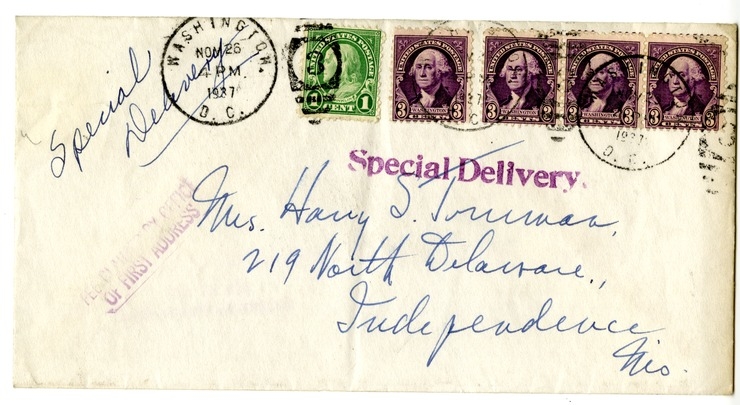 WASHINGTON.
NOV 26
4 PM.
1937
D. C.
UNITED STATES POSTAGE
1 CENT 1
UNITED STATES POSTAGE
3 WASHINGTON 3
CENTS
UNITED STATES POSTAGE
3 WASHINGTON 3
CENTS
UNITED STATES POSTAGE
3 WASHINGTON 3
CENTS
UNITED STATES POSTAGE
3 WASHINGTON 3
CENTS
1937
D. C.
Special
Delivery
Special Delivery.
OF FIRST ADDRESS
Mrs. Harry S. Truman,
219 North Delaware.,
Independence
Mo.